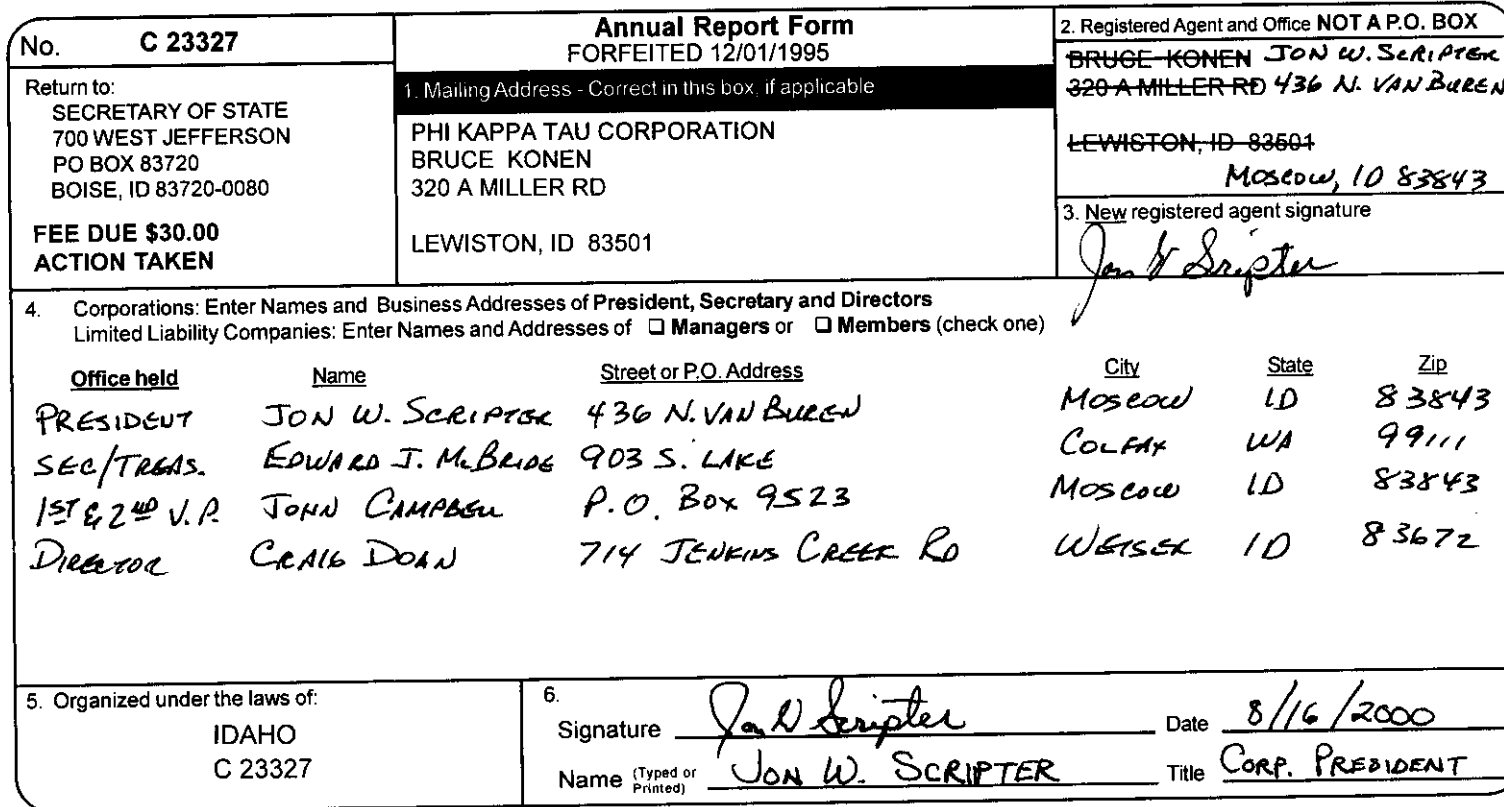 No. C 23327
Return to:
SECRETARY OF STATE
700 WEST JEFFERSON
PO BOX 83720
BOISE, ID 83720-0080
FEE DUE $30.00
ACTION TAKEN
Annual Report Form
FORFEITED 12/01/1995
1. Mailing Address - Correct in this box, if applicable
PHI KAPPA TAU CORPORATION
BRUCE KONEN
320 A MILLER RD
LEWISTON, ID 83501
2. Registered Agent and Office NOT A P.O. BOX
BRUCE KONEN JON W. SCRIPTER
320 A MILLER RD 436 N. VAN BUREN
LEWISTON, ID 83501
MOSCOW, ID 83843
3. New registered agent signature
Jon W Scripter
4. Corporations: Enter Names and Business Addresses of President, Secretary and Directors
Limited Liability Companies: Enter Names and Addresses of ❑ Managers or ❑ Members (check one)
Office held Name Street or P.O. Address City State Zip
PRESIDENT JON W. SCRIPTER 436 N. VAN BUREN MOSCOW ID 83843
SEC/TREAS. EDWARD J. McBRIDE 903 S. LAKE COLFAX WA 99111
1ST & 2ND V.P. JOHN CAMPBELL P.O. BOX 9523 MOSCOW ID 83843
DIRECTOR CRAIG DOAN 714 JENKINS CREEK RD WEISER ID 83672
5. Organized under the laws of:
IDAHO
C 23327
6.
Signature Jon W Scripter Date 8/16/2000
Name (Typed or Printed) JON W. SCRIPTER Title CORP. PRESIDENT